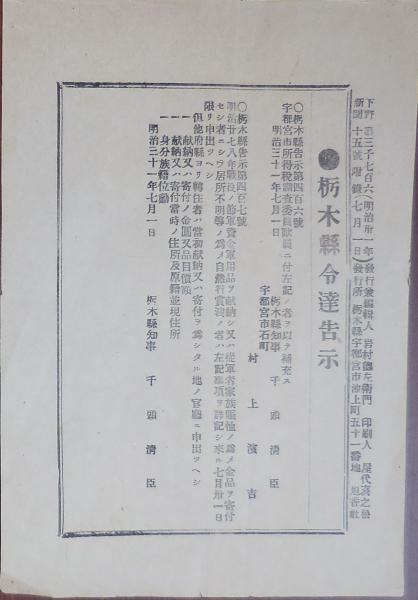 下野新聞 第三千七百六十五號附錄 (明治卅一年七月一日) 發行兼編輯人 岩村 左衛門 印刷人 屋代
發行所 栃木縣宇都宮市池上町五十一番地
栃木縣令達告示
○栃木縣告示第四百六號
宇都宮市所得稅調查委員缺員ニ付左記ノ者ヲ以テ補充ス
明治三十一年七月一日
栃木縣知事 千頭清臣
宇都宮市石町
村上濱吉
○栃木縣告示第四百七號
明治廿七八年戰役ノ節軍資金軍用品ヲ獻納シ又ハ從軍者家族賑恤ノ爲メ金品ヲ寄付
セシ者ニシテ居所不明等ノ爲メ自然行賞漏ノ者ハ左記事項ヲ詳記シ來ル七月卅一日
限リ申出ツヘシ
但他府縣ヨリ轉住者ハ當初獻納又ハ寄付ヲ爲シタル地ノ官廳ニ申出ツヘシ
一 獻納又ハ寄付ノ金圓又品目價格
一 獻納又ハ寄付當時ノ住所及原籍並現住所
一 身分族籍位勳
明治三十一年七月一日
栃木縣知事 千頭清臣